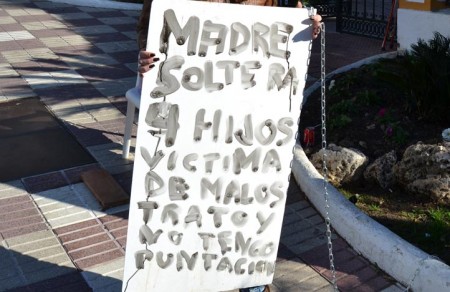 MADRE
SOLTERA
4 HIJOS
VICTIMA
DE MALOS
TRATO Y
NO TENGO
PUNTACION